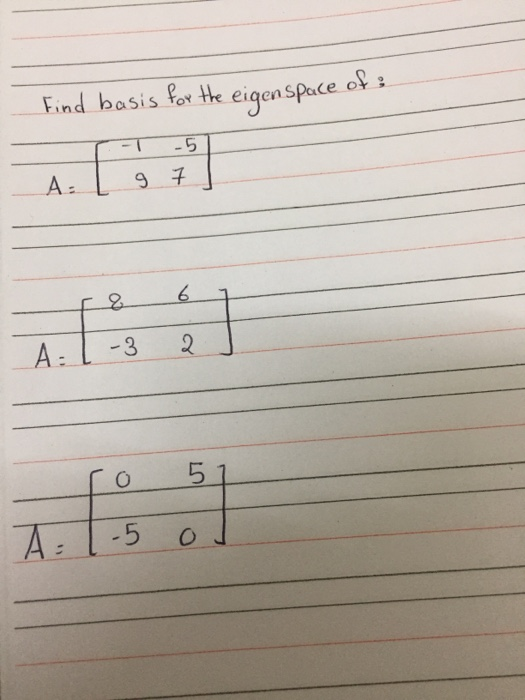 Find basis for the eigenspace of :
-1 -5
A = 9 7
8 6
A = -3 2
0 5
A = -5 0